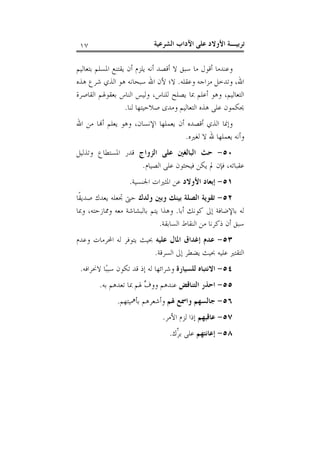 تربيـــة الأولاد على الآداب الشرعية ١٧
وعندما أقول ما سبق لا أقصد أنه يلزم أن يقتنع المسلم بتعاليم
الله، وتدخل مزاجه وعقله. لا؛ لأن الله سبحانه هو الذي شرع هذه
التعاليم، وهو أعلم بما يصلح للناس، وليس الناس بعقولهم القاصرة
يحكمون على هذه التعاليم ومدى صلاحيتها لنا.
وإنما الذي أقصده أن يعملها الإنسان، وهو يعلم أنها من الله
وأنه يعملها لله لا لغيره.
٥٠- حث البالغين على الزواج قدر المستطاع وتذليل
عقباته، فإن لم يكن فيحثون على الصيام.
٥١- إبعاد الأولاد عن المثيرات الجنسية.
٥٢- تقوية الصلة بينك وبين ولدك حتى تجعله يعدك صديقًا
له بالإضافة إلى كونك أبا. وهذا يتم بالبشاشة معه وممازحته، وبما
سبق أن ذكرنا من النقاط السابقة.
٥٣- عدم إغداق المال عليه بحيث يتوفر له المحرمات وعدم
التقتير عليه بحيث يضطر إلى السرقة.
٥٤- الانتباه للسيارة وشرائها له إذ قد تكون سببًا لانحرافه.
٥٥- احذر التناقض عندهم ووفِّ لهم بما تعدهم به.
٥٦- جالسهم واسمع لهم وأشعرهم بأهميتهم.
٥٧- عاقبهم إذا لزم الأمر.
٥٨- إعانتهم على برِّك.